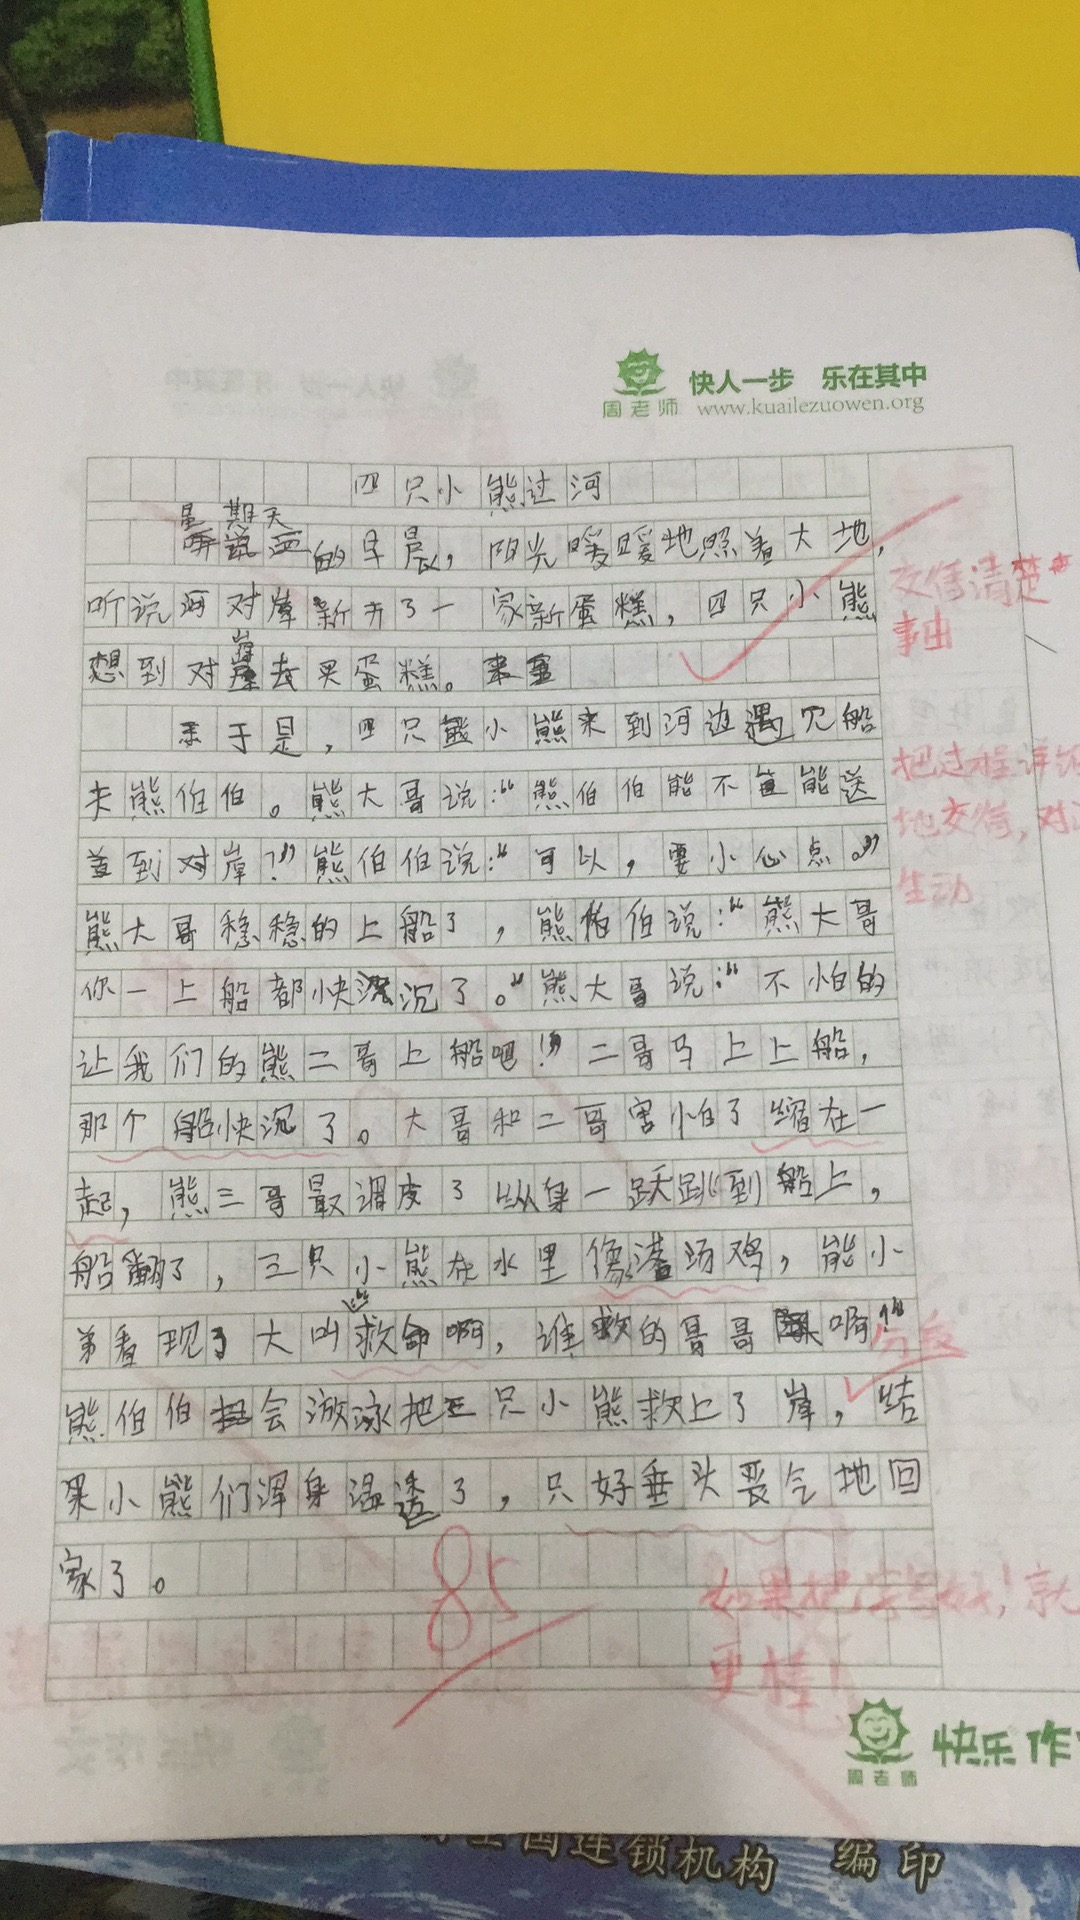 快人一步 乐在其中
周老师 www.kuailezuowen.org
四只小熊过河
星期天
的早晨，阳光暖暖地照着大地，
听说河对岸新开了一家新蛋糕，四只小熊
想到对岸去买蛋糕。
于是，四只小熊来到河边遇见船
夫熊伯伯。熊大哥说：“熊伯伯能不能送
到对岸？”熊伯伯说：“可以，要小心点。”
熊大哥稳稳的上船了，熊伯伯说：“熊大哥
你一上船都快沉了。”熊大哥说：“不怕的
让我们的熊二哥上船吧！”二哥马上上船，
那个船快沉了。大哥和二哥害怕了缩在一
起，熊三哥最调皮了纵身一跃跳到船上，
船翻了，三只小熊在水里像落汤鸡，熊小
弟看现了大叫“救命啊，谁救的哥哥啊！”
熊伯伯会游泳把三只小熊救上了岸，结
果小熊们浑身湿透了，只好垂头丧气地回
家了。
交待清楚
事由
把过程详细
地交待，对
生动
85
如果把字写好！就
更棒！
周老师
快乐作
全国连锁机构 编印